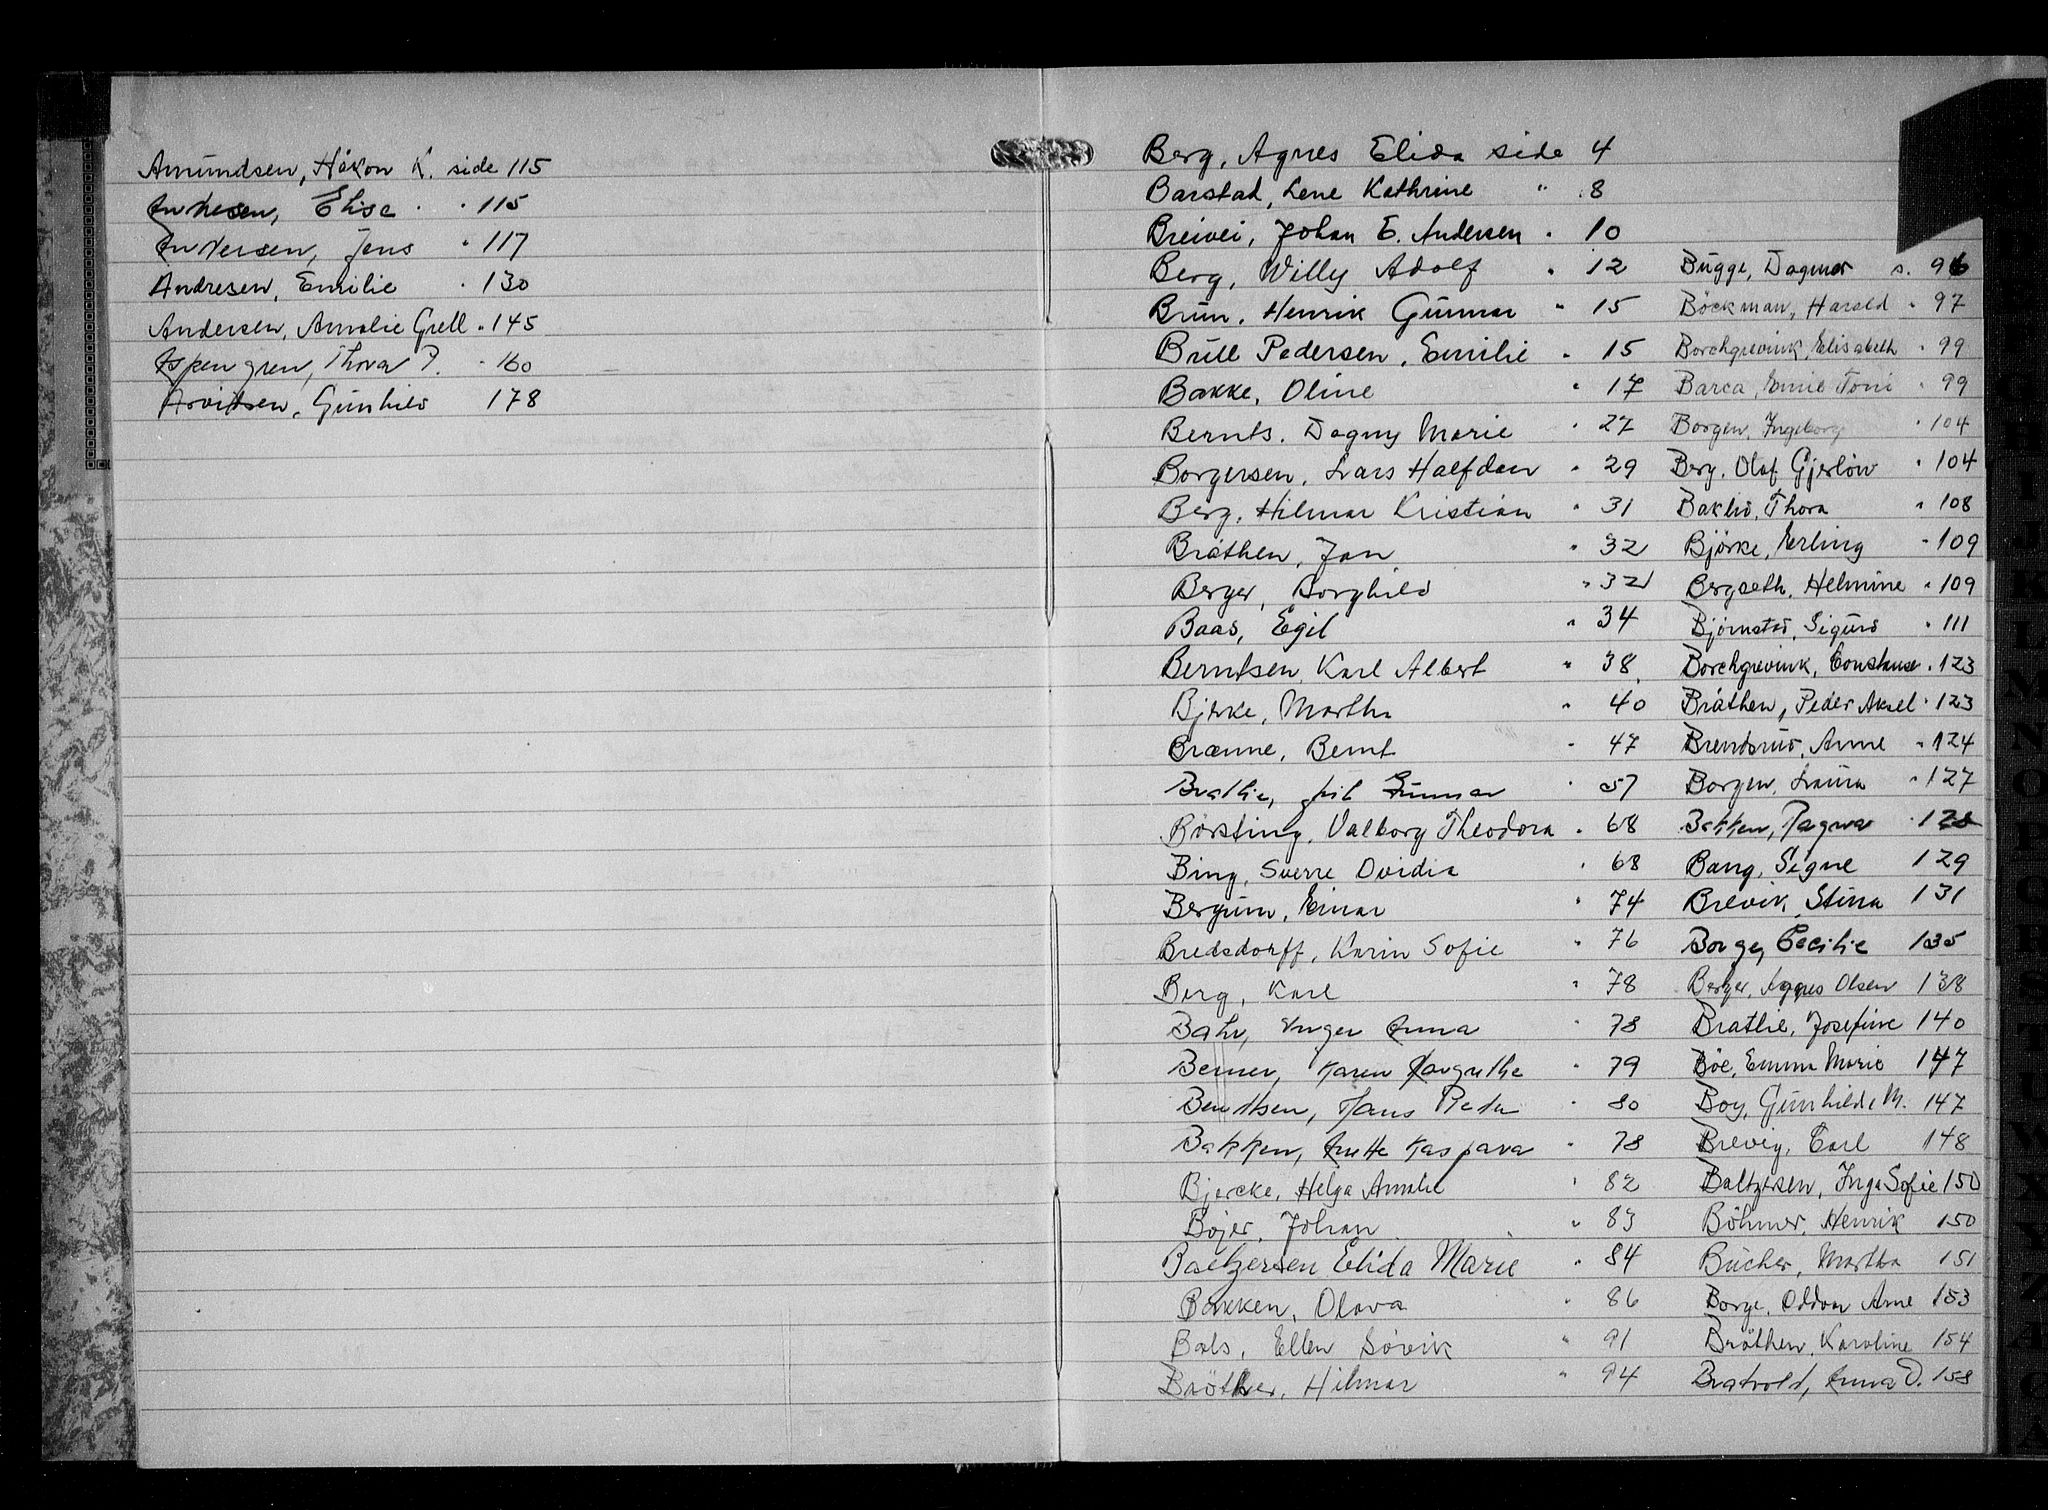 Amundsen, Håkon K. side 115
Andresen, Elise " 115
Andersen, Jens " 117
Andresen, Emilie " 130
Andersen, Amalie Grell " 145
Aspengren, Thora P. " 160
Arvidsen, Gunhild 178
Berg, Agnes Elida side 4
Barstad, Lene Kathrine " 8
Breivei, Johan E. Andersen " 10
Berg, Willy Adolf " 12
Brun, Henrik Gunnar " 15
Bull Pedersen, Emilie " 15
Bakke, Oline " 17
Bernts, Dagny Marie " 27
Borgersen, Lars Halfdan " 29
Berg, Hilmar Kristian " 31
Bråthen, Jan " 32
Berger, Borghild " 32
Baas, Egil " 34
Berntsen, Karl Albert " 38
Bjerke, Martha " 40
Brænne, Bernt " 47
Brathie, Gunnar " 57
Børsting, Valborg Theodora " 68
Bing, Sverre Ovidia " 68
Bergum, Einar " 74
Bredsdorff, Karin Sofie " 76
Berg, Karl " 78
Bahr, Inger Anna " 78
Berner, Karen Margrethe " 79
Berntsen, Hans Peder " 80
Bakken, Anette Kaspara " 78
Bjercke, Helga Amalie " 82
Bojer, Johan " 83
Baltzersen Elida Marie " 84
Bakken, Olava " 86
Bals, Ellen Sövik " 91
Bröther, Hilmar " 94
Bugge, Dagmar s. 96
Böckman, Harald " 97
Borchgrevink, Elisabeth " 99
Barca, Emil Toni " 99
Borgen, Ingeborg " 104
Berg, Olaf Gjerlöw " 104
Baklid, Thora " 108
Björke, Erling " 109
Bergseth, Helmine " 109
Bjørnstad, Sigurd " 111
Borchgrevink, Constanse " 123
Bråthen, Peder Aksel " 123
Brendsrud, Anne " 124
Borgen, Laura " 127
Bakken, Ragna " 128
Bang, Signe 129
Brevik, Stina 131
Borge, Cecilie 135
Berger, Agnes Olsen 138
Bratlie, Josefine 140
Böe, Emma Marie 147
Boy, Gunhild M. 147
Brevig, Carl 148
Baltzersen, Inga Sofie 150
Böhmer, Henrik 150
Bucher, Martha 151
Borge, Oddvar Arne 153
Bråthen, Karoline 154
Bratvold, Anna O. 158